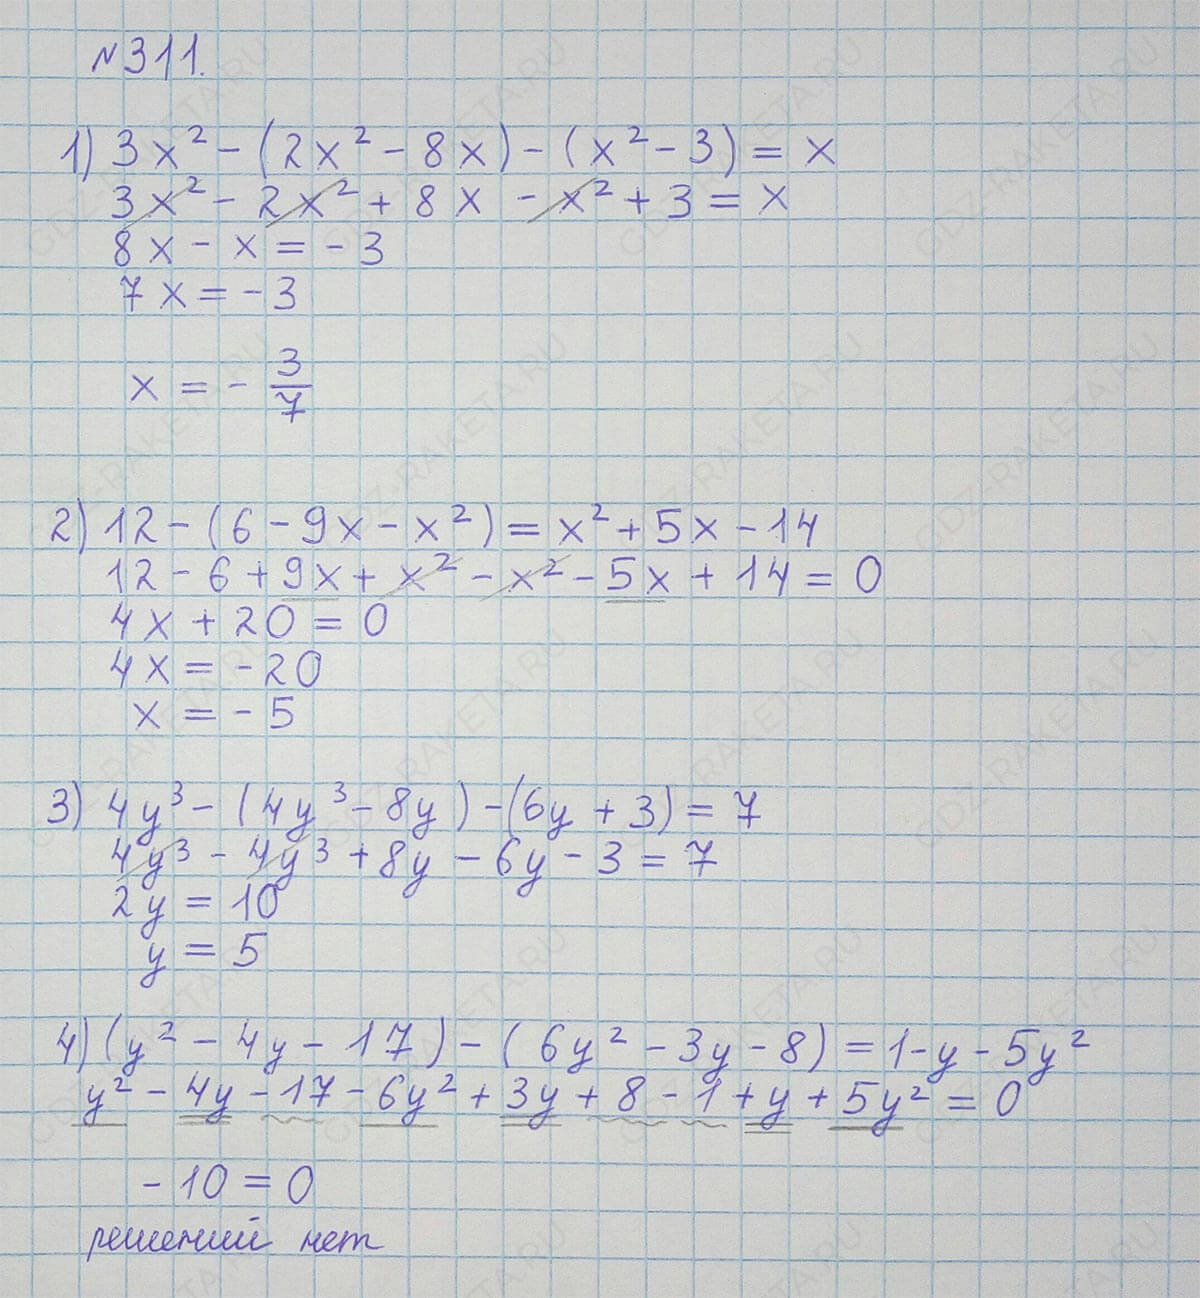 №311.
1) 3x² - (2x² - 8x) - (x² - 3) = x
3x² - 2x² + 8x - x² + 3 = x
8x - x = -3
7x = -3
x = - 3/7
2) 12 - (6 - 9x - x²) = x² + 5x - 14
12 - 6 + 9x + x² - x² - 5x + 14 = 0
4x + 20 = 0
4x = -20
x = -5
3) 4y³ - (4y³ - 8y) - (6y + 3) = 7
4y³ - 4y³ + 8y - 6y - 3 = 7
2y = 10
y = 5
4) (y² - 4y - 17) - (6y² - 3y - 8) = 1 - y - 5y²
y² - 4y - 17 - 6y² + 3y + 8 - 1 + y + 5y² = 0
-10 = 0
решений нет